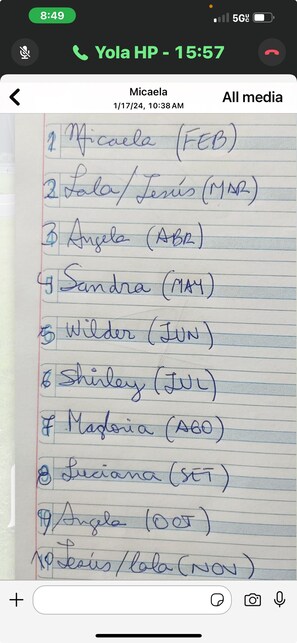 8:49
5G
22
Yola HP - 15:57
Micaela
1/17/24, 10:38 AM
All media
1 Micaela (FEB)
2 Lola/Jesús (MAR)
3 Angela (ABR)
4 Sandra (MAY)
5 Wilder (JUN)
6 Shirley (JUL)
7 Magloria (AGO)
8 Luciana (SET)
9 Angela (OCT)
10 Jesús/Lola (NOV)